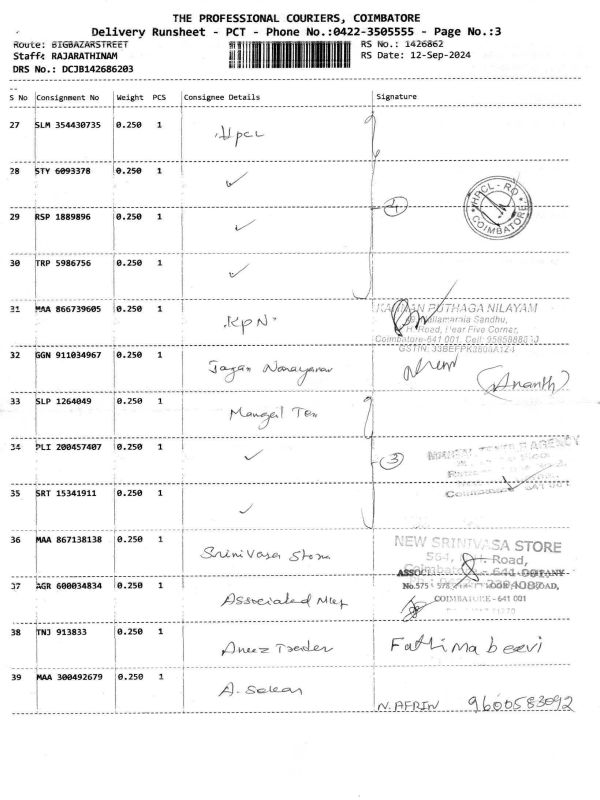 THE PROFESSIONAL COURIERS, COIMBATORE
Delivery Runsheet - PCT - Phone No.:0422-3505555 - Page No.:3
Route: BIGBAZARSTREET
RS No.: 1426862
Staff: RAJARATHINAM
RS Date: 12-Sep-2024
DRS No.: DCJB142686203
S No Consignment No Weight PCS Consignee Details Signature
27 SLM 354430735 0.250 1 Hpcl
28 STY 6093378 0.250 1 ✓
29 RSP 1889896 0.250 1 ✓ 4
HPCL - RO
COIMBATORE
30 TRP 5986756 0.250 1 ✓
31 MAA 866739605 0.250 1 KPN
KANNAN PUTHAGA NILAYAM
Sandhu,
H. Road, Near Five Corner,
Coimbatore-641 001. Cell:
GSTIN:
32 GGN 911034967 0.250 1 Jagan Narayanan
(Ananth)
33 SLP 1264049 0.250 1 Mangal
34 PLI 200457407 0.250 1 ✓ 3
AGENCY
641 001
35 SRT 15341911 0.250 1 ✓
36 MAA 867138138 0.250 1 Srinivasa Store
NEW SRINIVASA STORE
564, Road,
Coimbatore - 641 001
37 AGR 600034834 0.250 1 Associated
No.575
COIMBATORE - 641 001
38 TNJ 913833 0.250 1 Aneez Trader Fathima beevi
39 MAA 300492679 0.250 1 N. AFRIN 9600583092